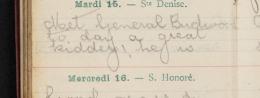 Mardi 15. — Ste Denise.
Met General Birdwood
to day a great
kiddey! he is
Mercredi 16. — S. Honoré.